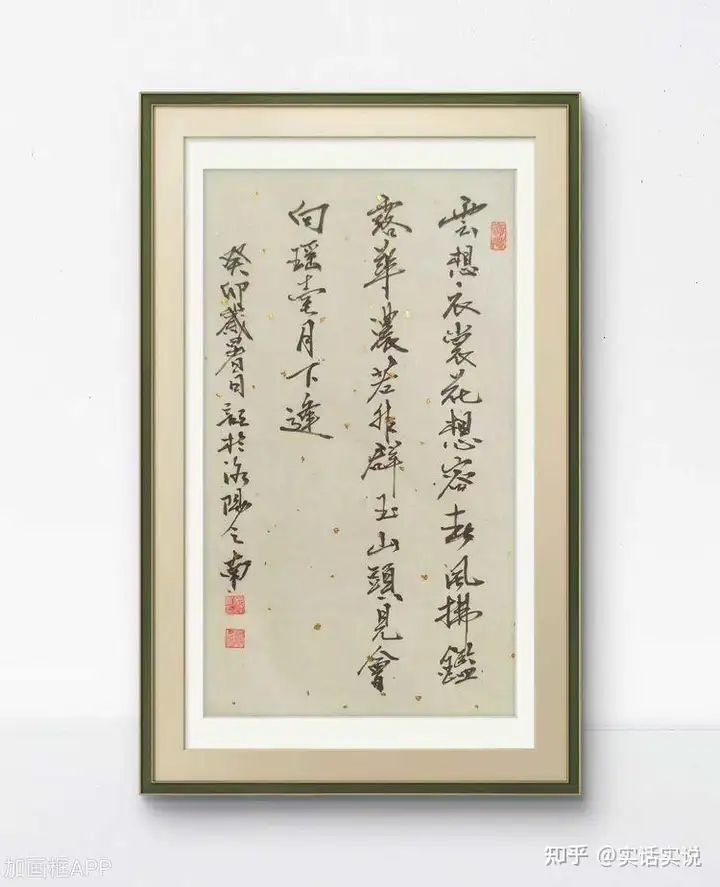 雲想衣裳花想容春風拂鑑
露華濃若非群玉山頭見會
向瑶臺月下逢
癸卯歲於洛陽之南
加画框APP
知乎 @实话实说